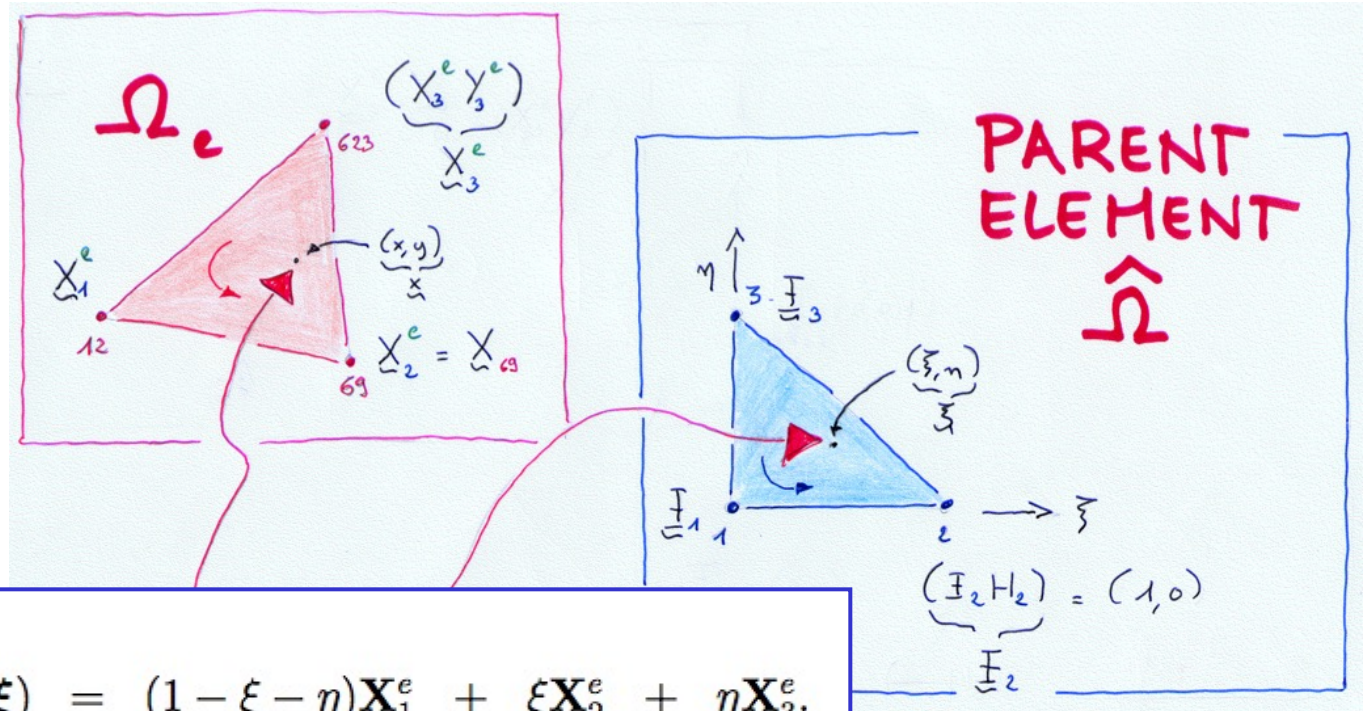 Ω e
(X₃ᵉ Y₃ᵉ)
X₃ᵉ
623
(x,y)
x
X₁ᵉ
12
X₂ᵉ = X₆₉
69
PARENT
ELEMENT
Ω̂
η
3 Ξ₃
(ξ,η)
ξ
Ξ₁ 1
2
ξ
(Ξ₂ H₂) = (1,0)
Ξ₂
ξ) = (1 − ξ − η)X₁ᵉ + ξX₂ᵉ + ηX₃ᵉ.